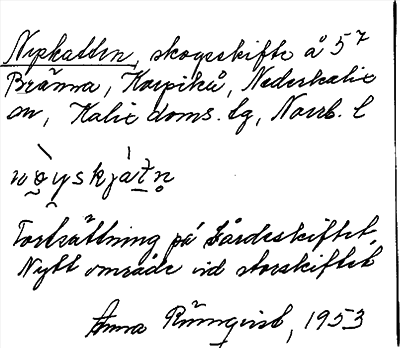 Nyskatten, skogsskifte å 5⁷
Bränna, Korpikå, Nederkalix
sn, Kalix doms. lg, Norrb. l
Fortsättning på Gårdeskiftet.
Nytt område vid storskiftet
Anna Rönnqvist, 1953